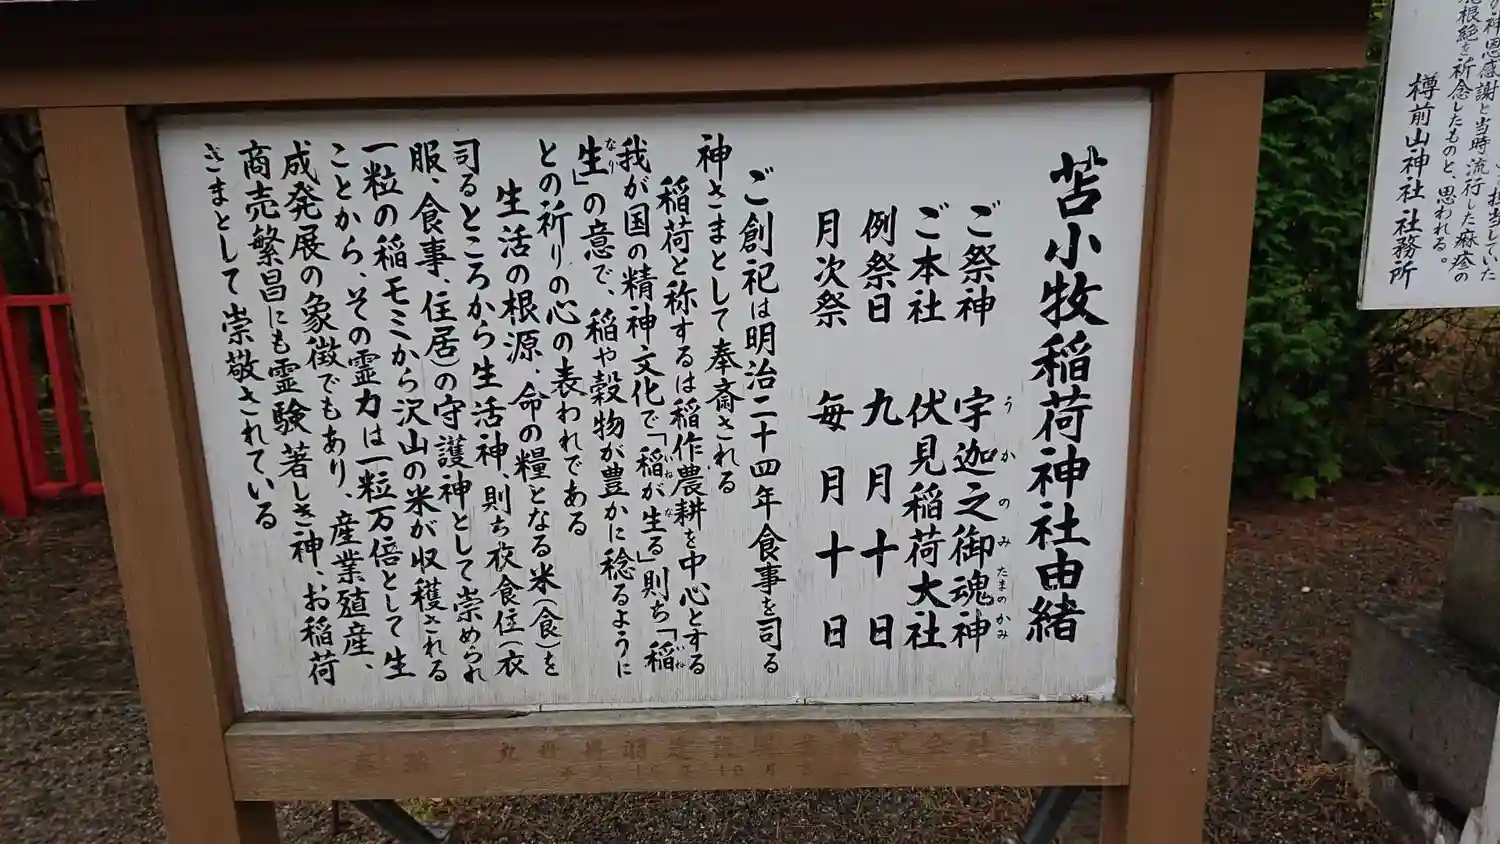 苫小牧稲荷神社由緒
ご祭神 宇迦之御魂神
うかのみたまのかみ
ご本社 伏見稲荷大社
例祭日 九月十日
月次祭 毎月十日
ご創祀は明治二十四年食事を司る
神さまとして奉斎される
稲荷と称するは稲作農耕を中心とする
我が国の精神文化で「稲が生る」則ち「稲
いね な いね
生」の意で、稲や穀物が豊かに稔るように
なり
との祈りの心の表われである
生活の根源、命の糧となる米(食)を
司るところから生活神、則ち衣食住(衣
服、食事、住居)の守護神として崇められ
一粒の稲モミから沢山の米が収穫される
ことから、その霊力は一粒万倍として生
成発展の象徴でもあり、産業殖産、
商売繁昌にも霊験著しき神、お稲荷
さまとして崇敬されている
神恩感謝と当時流行した麻疹の
根絶を祈念したものと、思われる。
樽前山神社 社務所